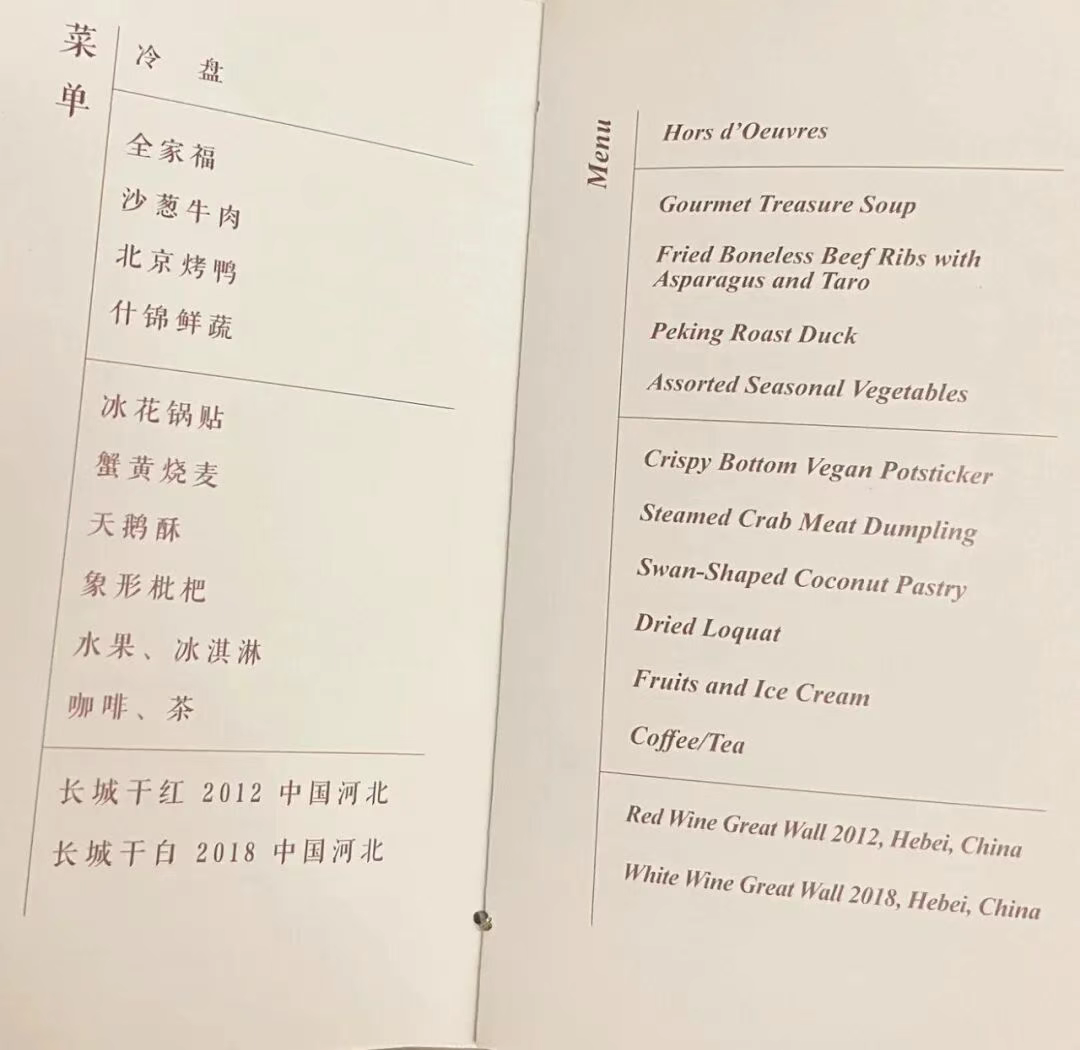 菜单
冷 盘
全家福
沙葱牛肉
北京烤鸭
什锦鲜蔬
冰花锅贴
蟹黄烧麦
天鹅酥
象形枇杷
水果、冰淇淋
咖啡、茶
长城干红 2012 中国河北
长城干白 2018 中国河北
Menu
Hors d’Oeuvres
Gourmet Treasure Soup
Fried Boneless Beef Ribs with
Asparagus and Taro
Peking Roast Duck
Assorted Seasonal Vegetables
Crispy Bottom Vegan Potsticker
Steamed Crab Meat Dumpling
Swan-Shaped Coconut Pastry
Dried Loquat
Fruits and Ice Cream
Coffee/Tea
Red Wine Great Wall 2012, Hebei, China
White Wine Great Wall 2018, Hebei, China